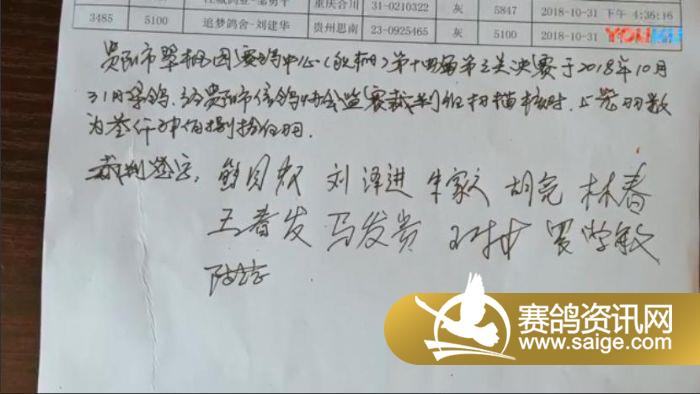 重庆合川 31-0210322 灰 5847 2018-10-31 下午 4:36:16
3485 5100 追梦鸽舍-刘建华 贵州思南 23-0925465 灰 5100 2018-10-31
YOUKU
贵阳市翠桐园赛鸽中心(秋棚)第十四届第三关决赛于2018年10月
31日集鸽,经贵阳市信鸽协会监赛裁判组扫描核对,上笼羽数
为叁仟肆佰捌拾伍羽.
裁判签字:刘泽进 朱家文 胡亮 林春
王春发 马发贵 罗学敏
赛鸽资讯网
www.saige.com